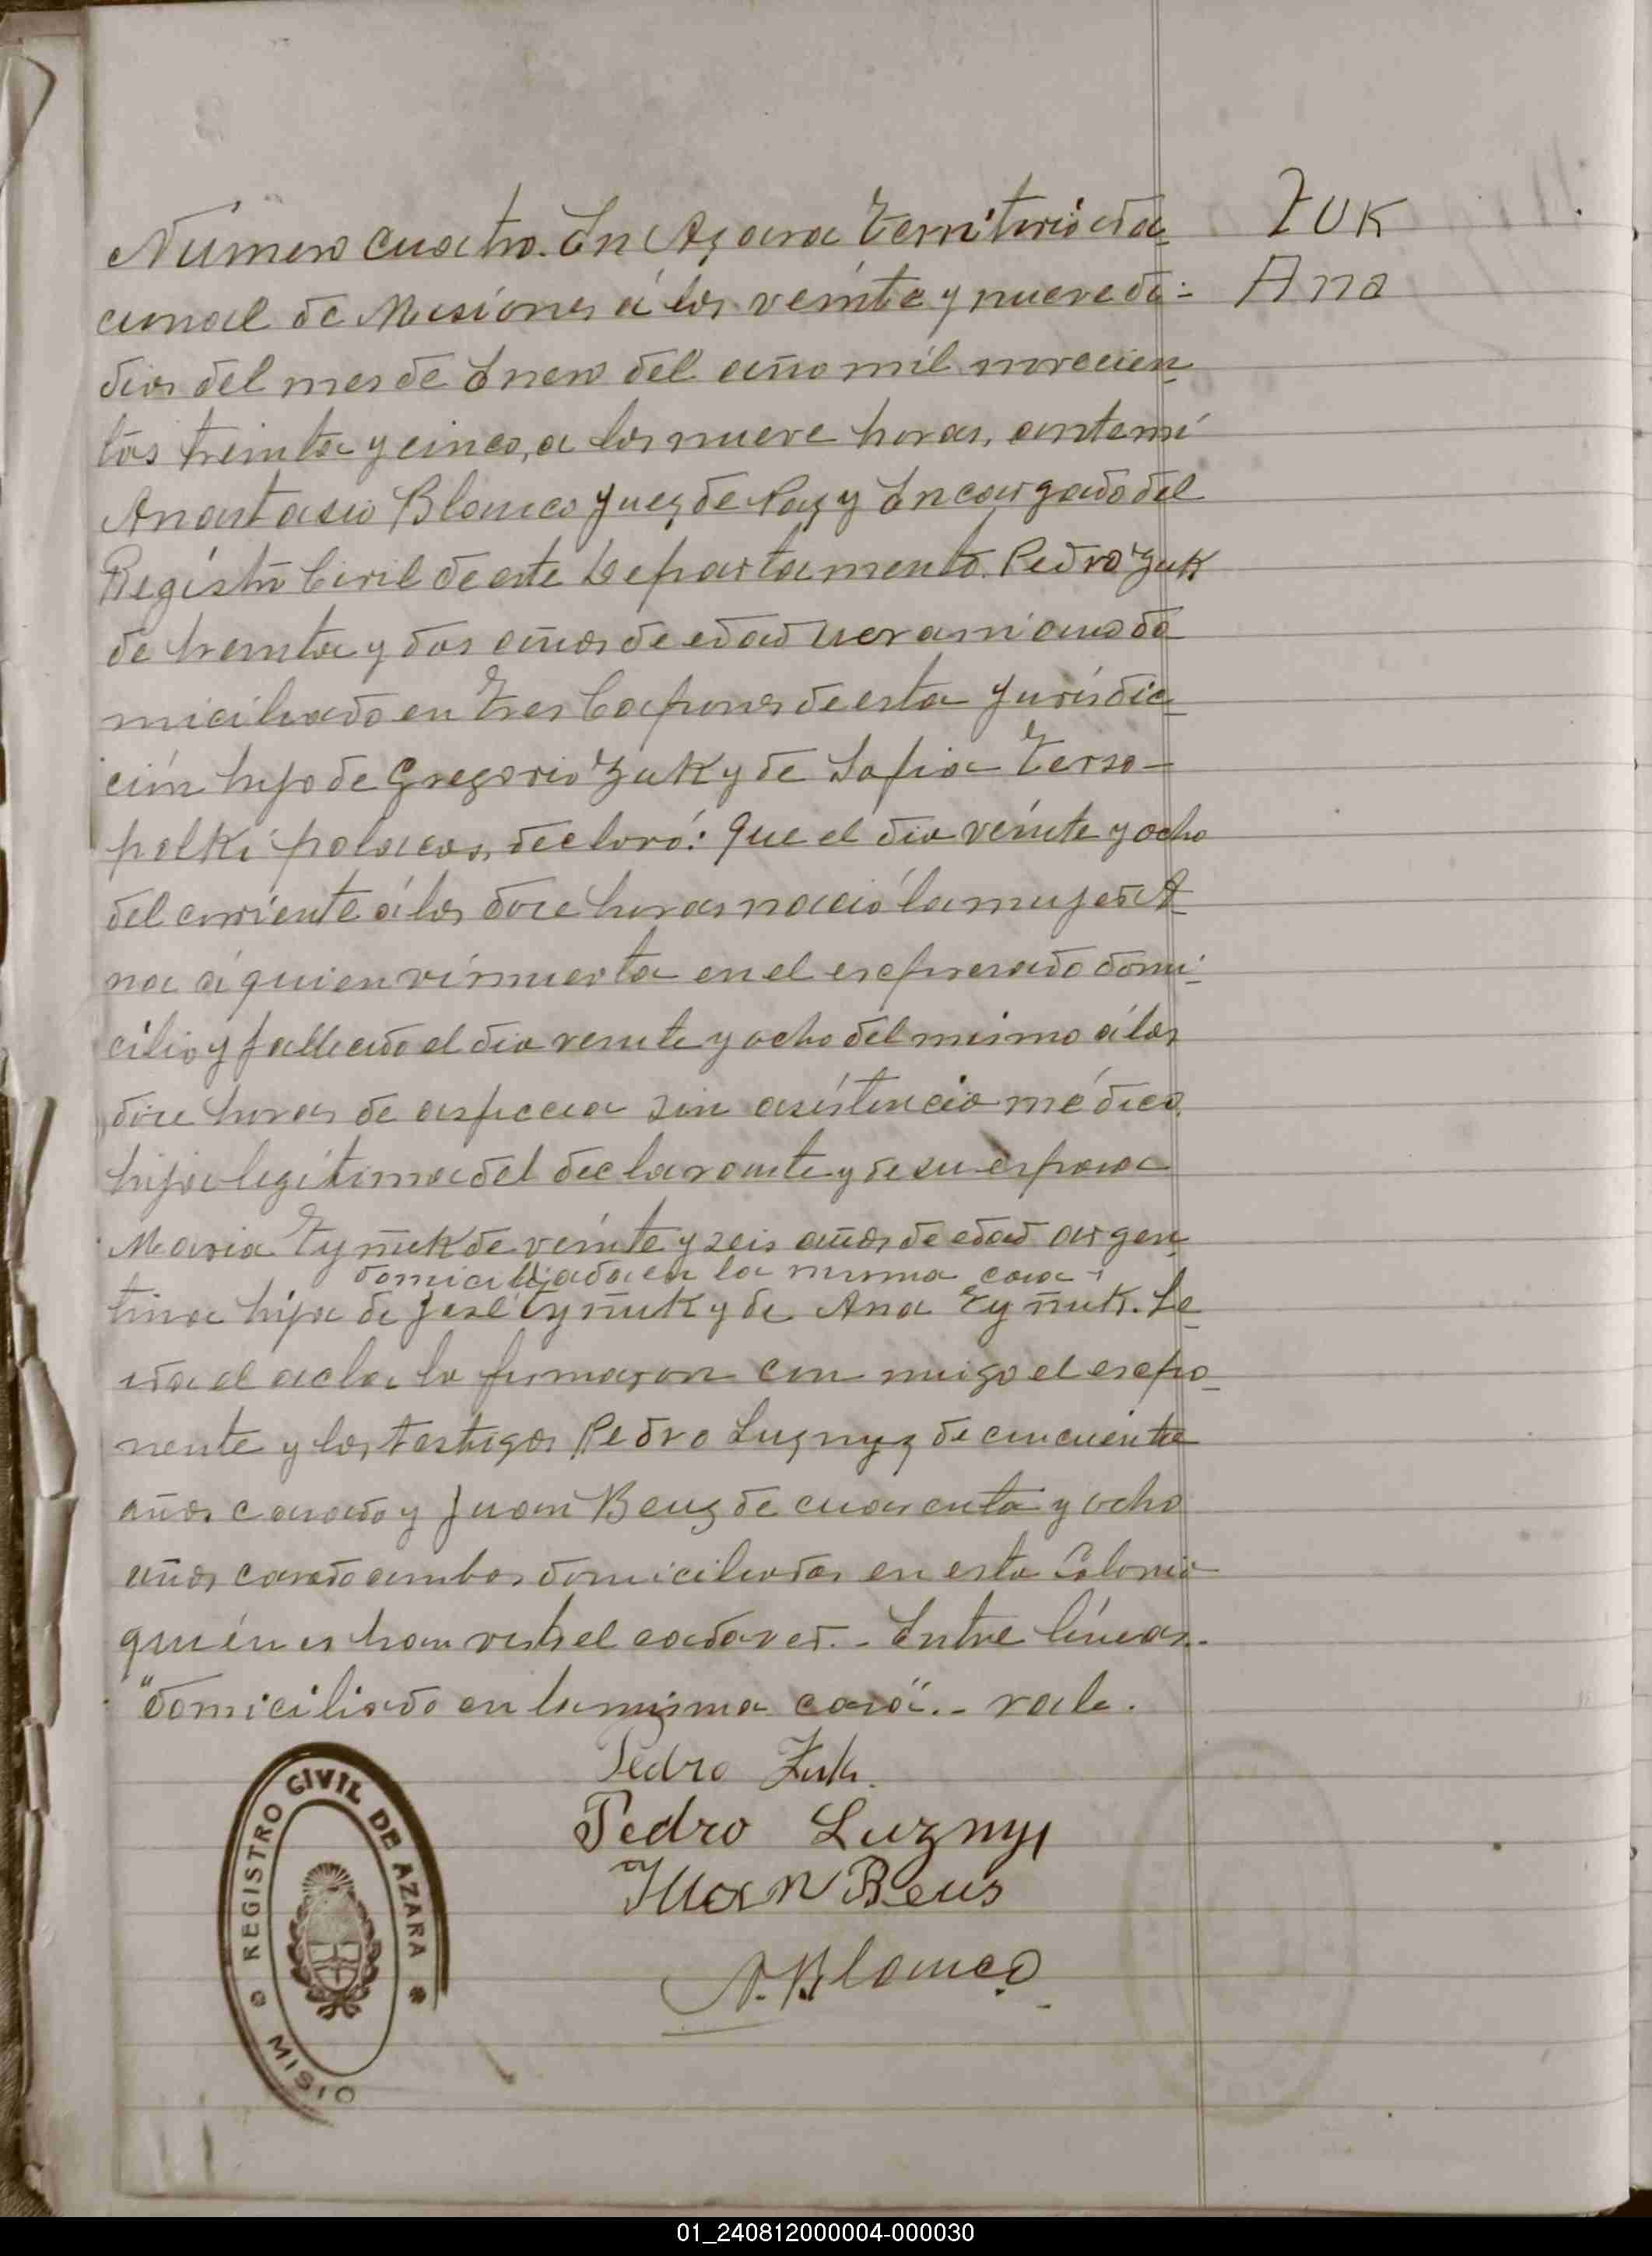 ZUK
Ana
Número cuatro. En Azara Territorio na_
cional de Misiones á los veinte y nueve di-
dias del mes de Enero del año mil novecien_
tos treinta y cinco, a las nueve horas, ante mi
Anastasio Blanco Juez de Paz y Encargado del
Registro Civil de este Departamento. Pedro Zuk
de treinta y dos años de edad ucraniano do
miciliado en Tres Capones de esta Jurisdic_
ción hijo de Gregorio Zuk y de Sofia Terso-
polki polacos, declaró: Que el dia veinte y ocho
del corriente á las doce horas nació la mujer A_
na á quien ví muerta en el expresado domi_
cilio y fallecido el dia veinte y ocho del mismo á las
doce horas de asficcia sin asistencia médica
hija legítima del declarante y de su esposa
Maria Tyñuk de veinte y seis años de edad argen_
domiciliada en la misma casa
tina hija de José Tyñuk y de Ana Tyñuk. Le_
ida el acta la firmaron con migo el expo_
nente y los testigos Pedro Luznyz de cincuenta
años casado y Juan Beuz de cuarenta y ocho
años casado ambos domiciliados en esta Colonia
quiénes han visto el cadaver.- Entre líneas.
"domiciliado en la misma casa".- vale.
Pedro Zuk.
Pedro Luzny
Juan Beus
A. Blanco
REGISTRO CIVIL DE AZARA
MISIO
01_240812000004-000030